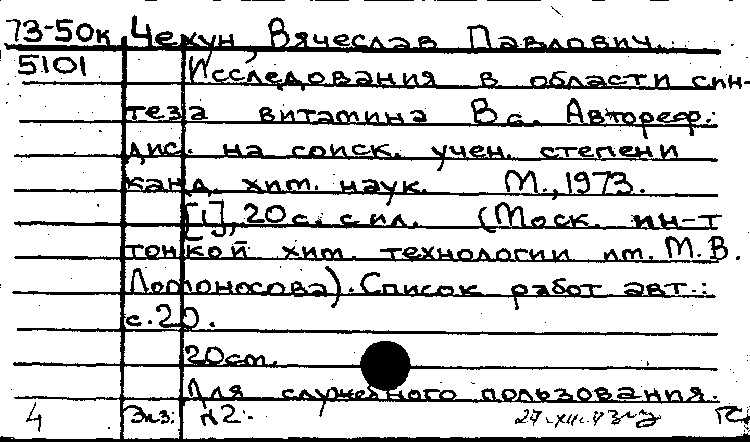 73-50к Чехун, Вячеслав Павлович.
5101 Исследования в области син-
теза витамина В6. Автореф.
дис. на соиск. учен. степени
канд. хим. наук. М., 1973.
[1], 20 с. с ил. (Моск. ин-т
тонкой хим. технологии им. М.В.
Ломоносова). Список работ авт.:
с. 20.
20 см.
Для служебного пользования.
4 Экз. №2.